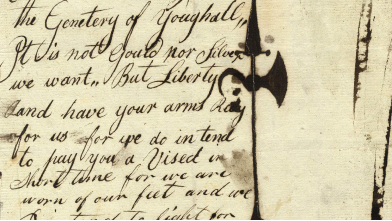 the Cemetery of Youghall,,
It is not Gould nor Silver
we want,, But Liberty
and have your arms Rady
for us for we do intend
to pay you a Vised in
Short time for we are
worn of our feet and we
to fight for